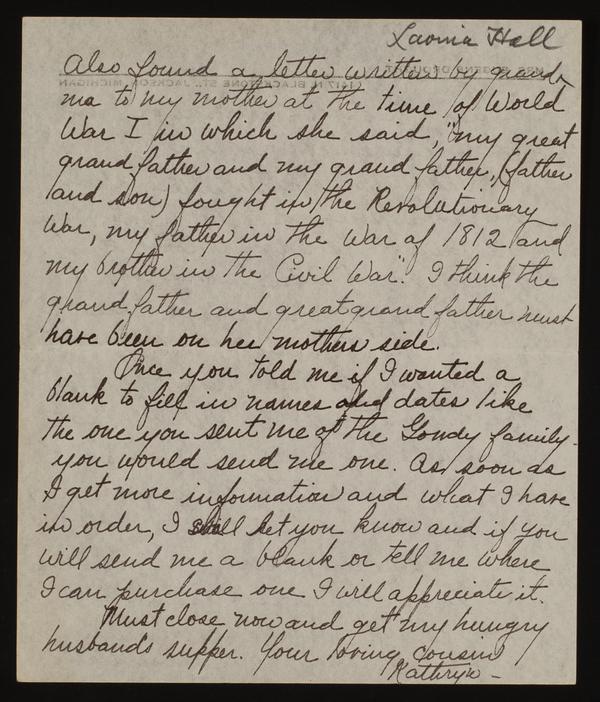 Lavonia Hall
Also found a letter written by grand-
ma to my mother at the time of World
War I in which she said, "my great
grand father and my grand father, (father
and son) fought in the Revolutionary
War, my father in the War of 1812 and
my brother in the Civil War". I think the
grand father and great grand father must
have been on her mothers side.
Once you told me if I wanted a
blank to fill in names and dates like
the one you sent me of the Gowdy family
you would send me one. As soon as
I get more information and what I have
in order, I shall let you know and if you
will send me a blank or tell me where
I can purchase one I will appreciate it.
Must close now and get my hungry
husbands supper. Your loving cousin
Kathryn -